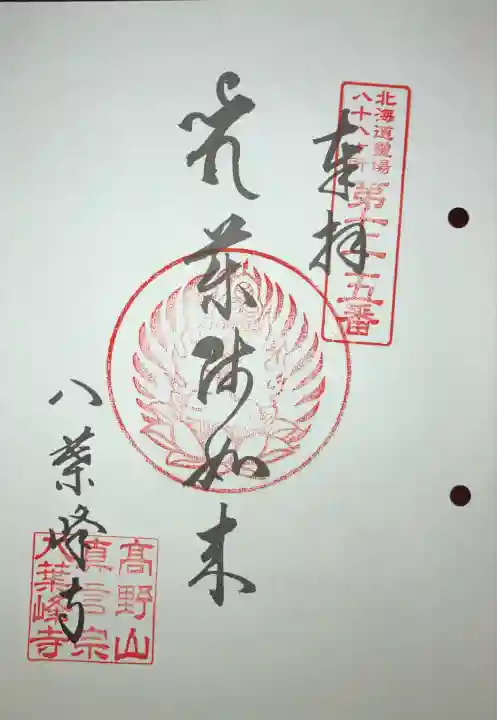 北海道霊場
八十八ヶ所
奉拝
薬師如来
八葉峰寺
高野山
真言宗
八葉峰寺